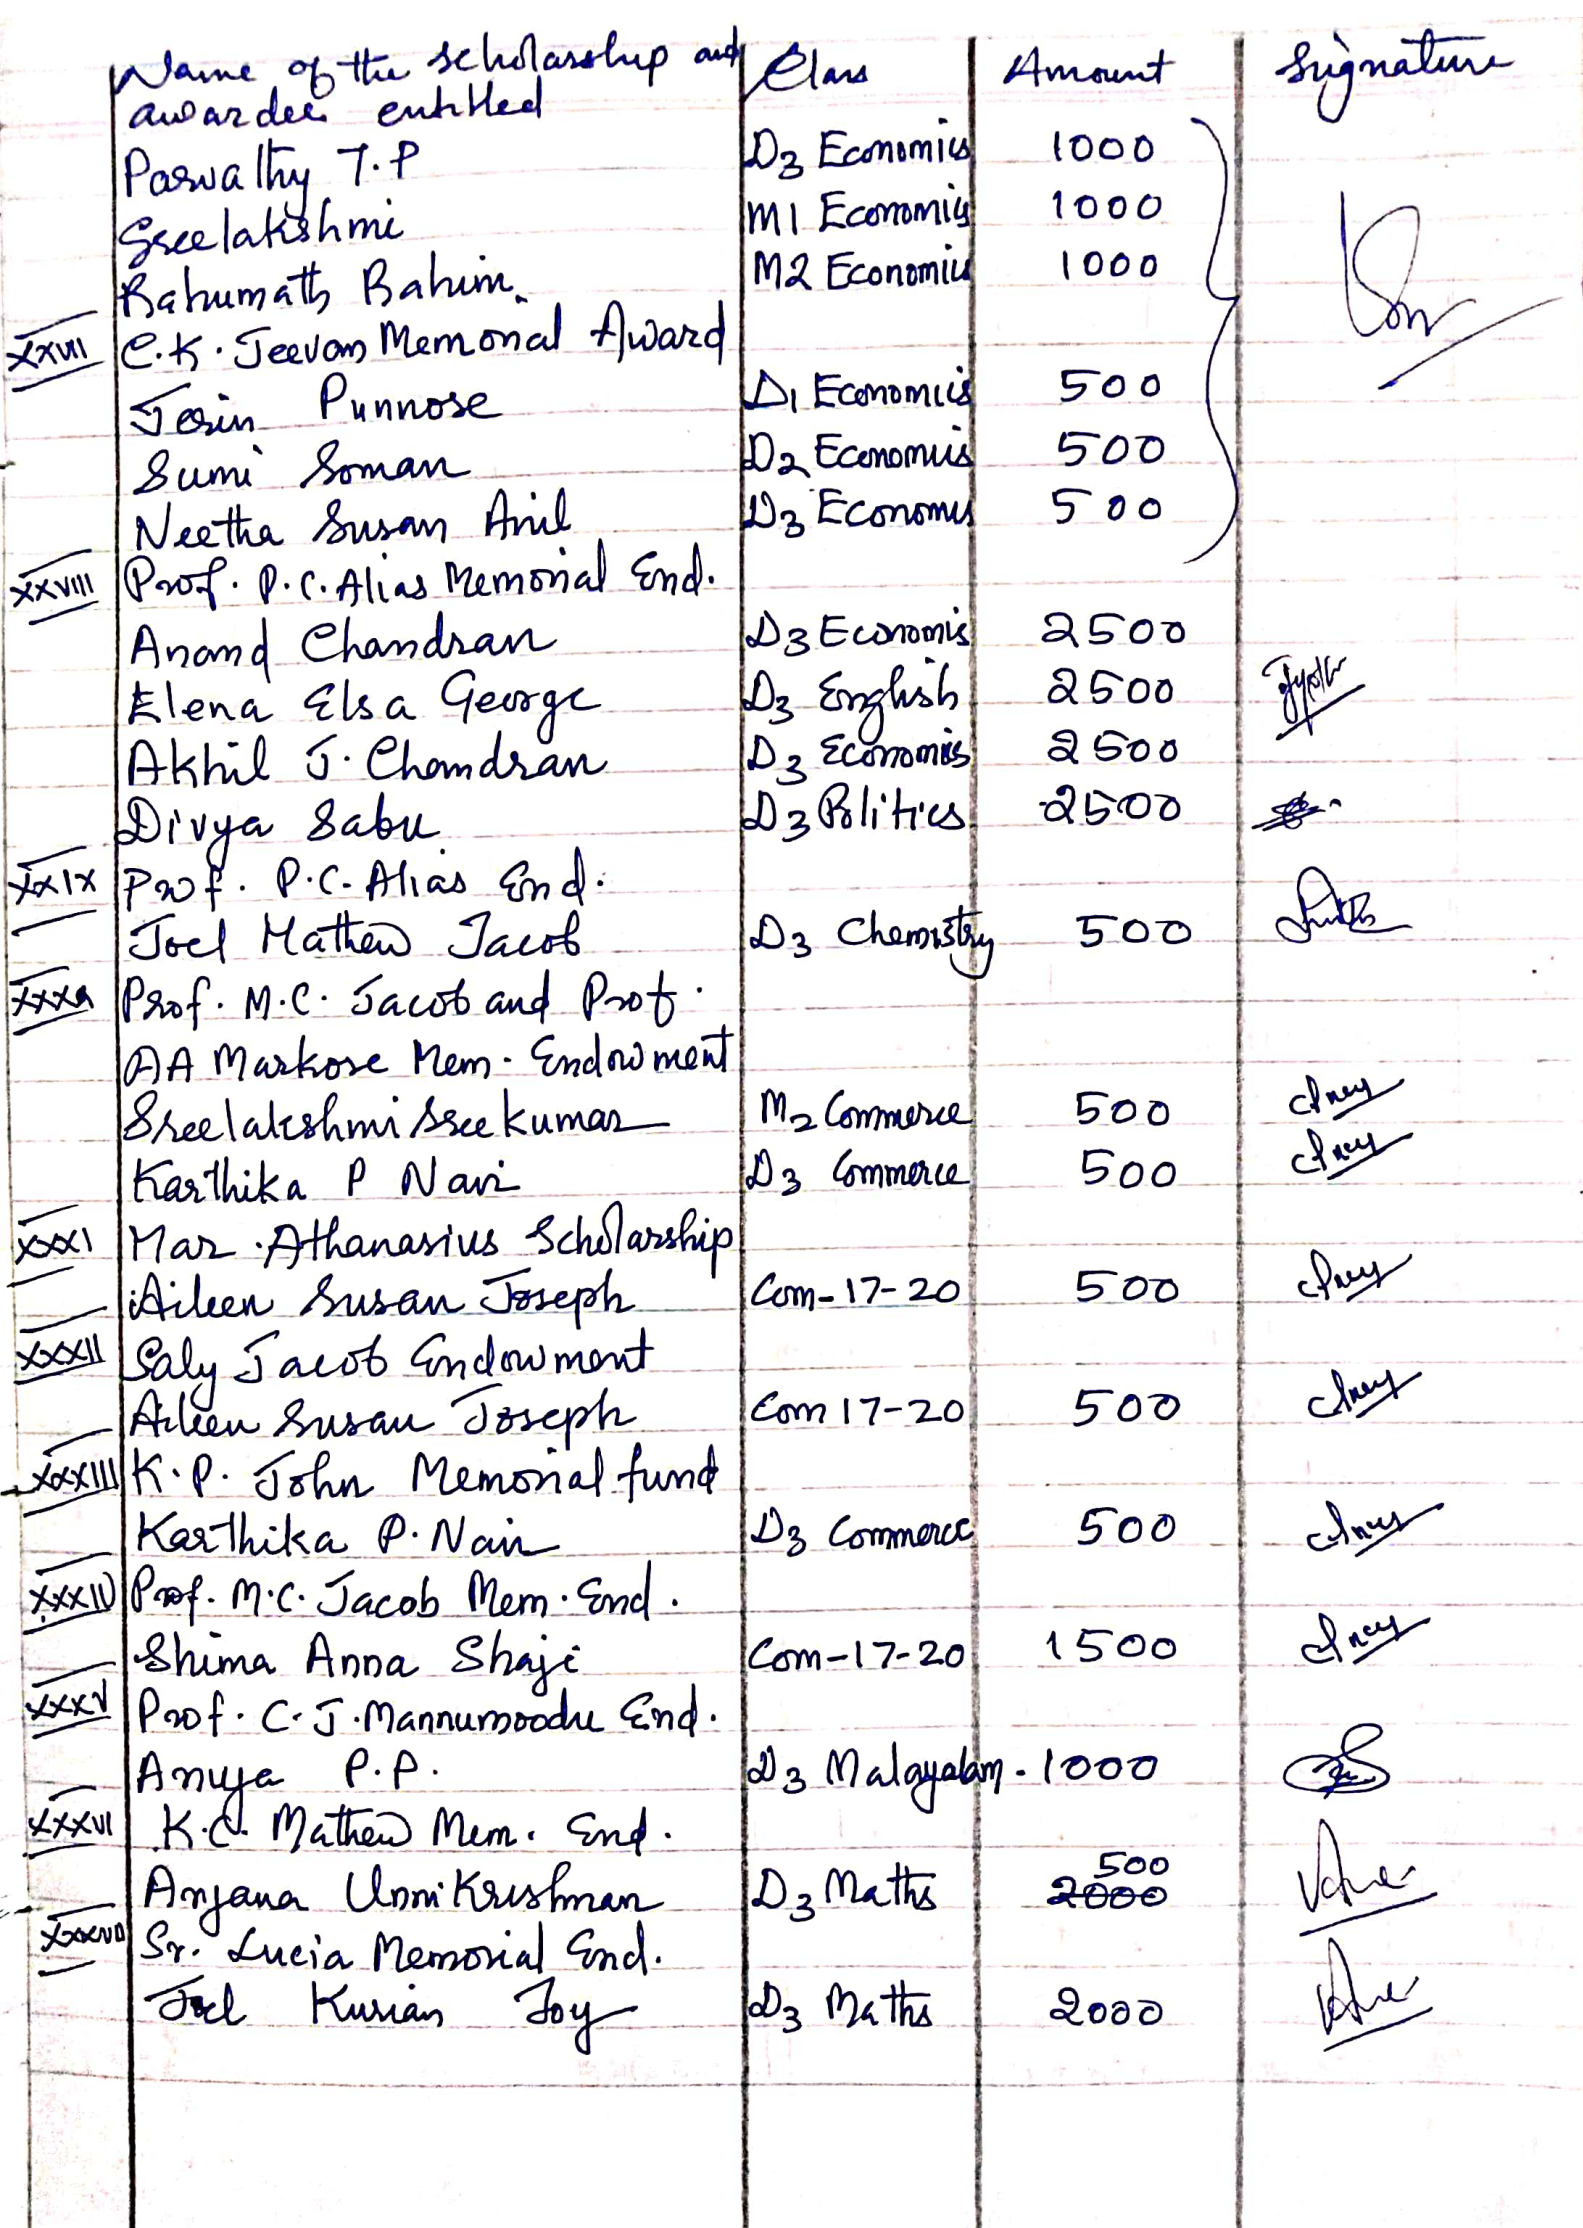 Name of the scholarship and Class Amount Signature
awardee entitled
Parvathy T.P D3 Economics 1000
Sreelakshmi M1 Economics 1000
Rahumath Rahim. M2 Economics 1000
XXVII C.K. Jeevan Memorial Award
Jerin Punnose D1 Economics 500
Sumi Soman D2 Economics 500
Neetha Susan Anil D3 Economics 500
XXVIII Prof. P.C. Alias Memorial End.
Anand Chandran D3 Economics 2500
Elena Elsa George D3 English 2500
Akhil J. Chandran D3 Economics 2500
Divya Sabu D3 Politics 2500
XXIX Prof. P.C. Alias End.
Joel Mathew Jacob D3 Chemistry 500
XXXa Prof. M.C. Jacob and Prof.
AA Markose Mem. Endowment
Sreelakshmi Sreekumar M2 Commerce 500
Karthika P Nair D3 Commerce 500
XXXI Mar. Athanasius Scholarship
Aileen Susan Joseph Com-17-20 500
XXXII Saly Jacob Endowment
Aileen Susan Joseph Com 17-20 500
XXXIII K.P. John Memorial fund
Karthika P. Nair D3 Commerce 500
XXXIV Prof. M.C. Jacob Mem. End.
Shima Anna Shaji Com-17-20 1500
XXXV Prof. C.J. Mannumoodu End.
Anuja P.P. D3 Malayalam - 1000
XXXVI K.C. Mathew Mem. End.
500
Anjana Unnikrishnan D3 Maths 2000
XXXVII Sr. Lucia Memorial End.
Joel Kurian Joy D3 Maths 2000